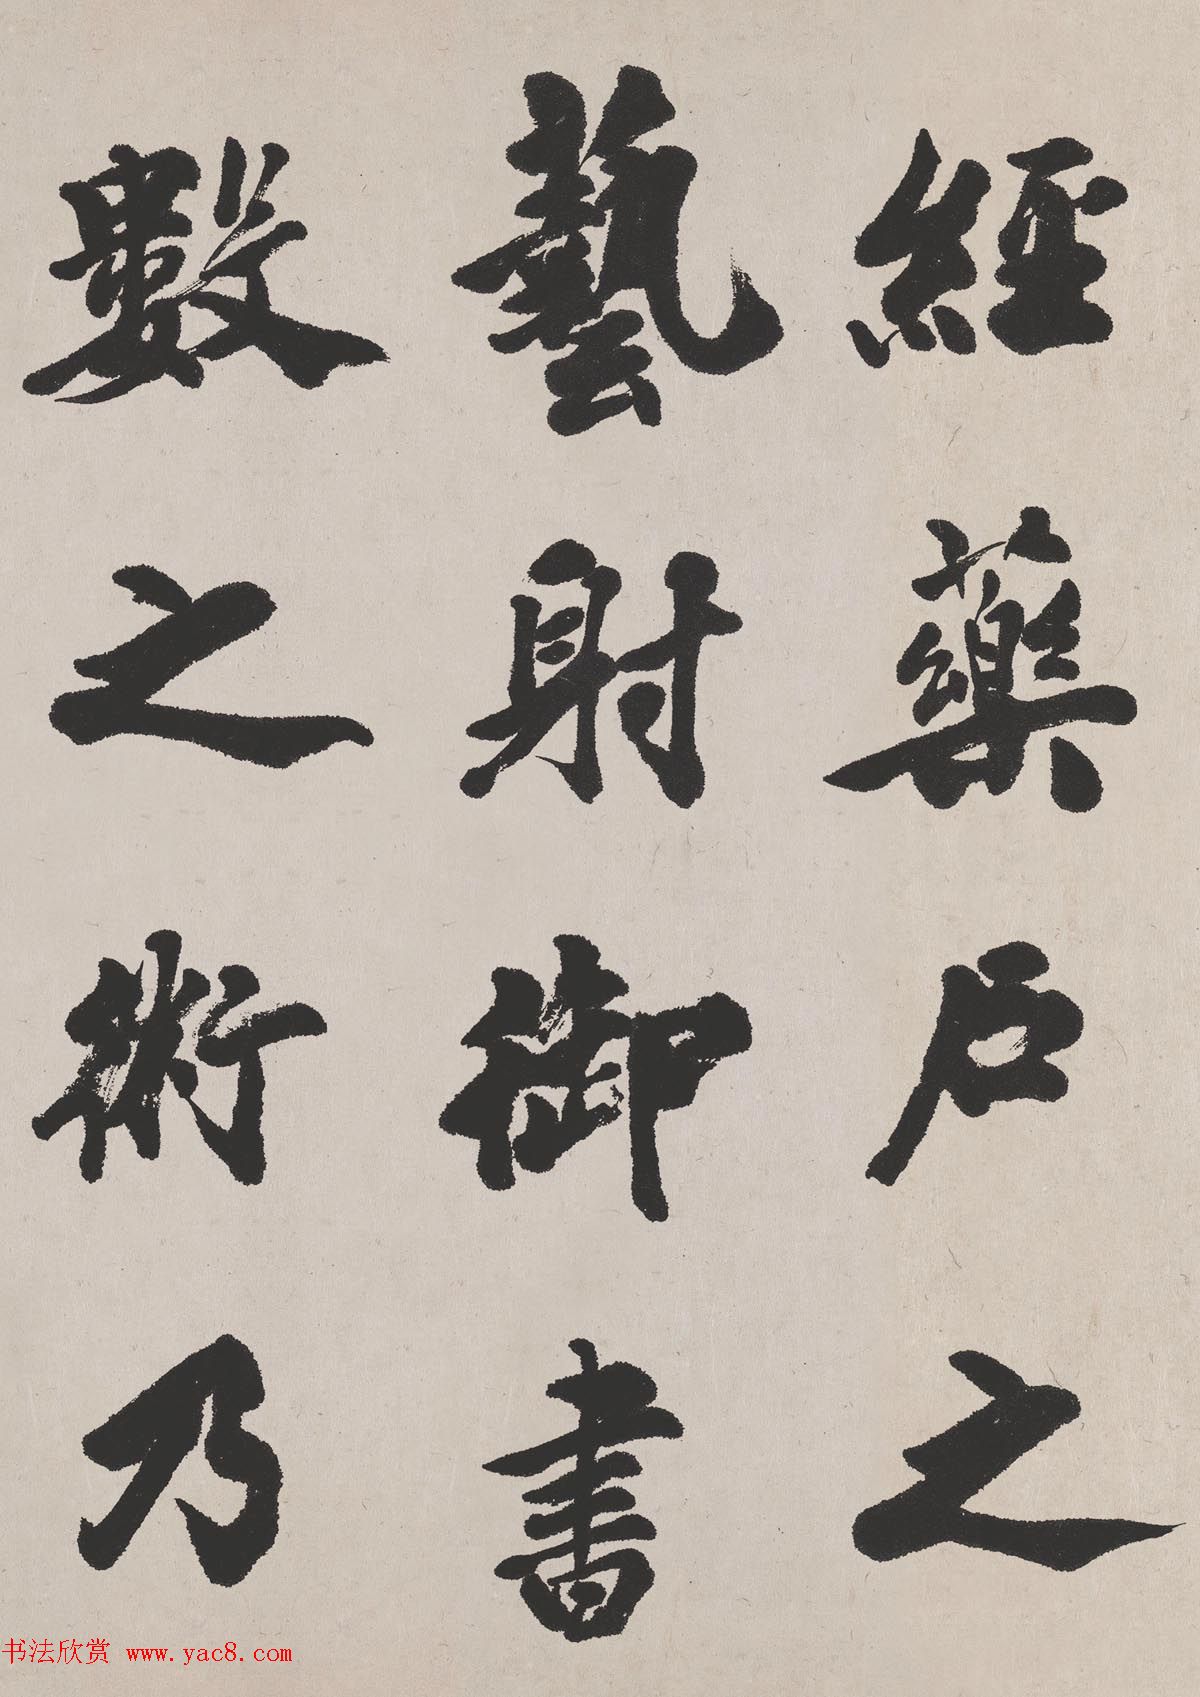 經藥戶之
藝射御書
數之術乃
书法欣赏 www.yac8.com